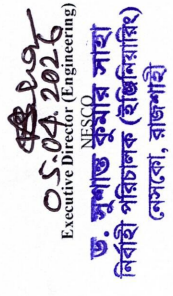 05.04.2026
Executive Director (Engineering)
NESCO
ড. সুশান্ত কুমার সাহা
নির্বাহী পরিচালক (ইঞ্জিনিয়ারিং)
নেসকো, রাজশাহী